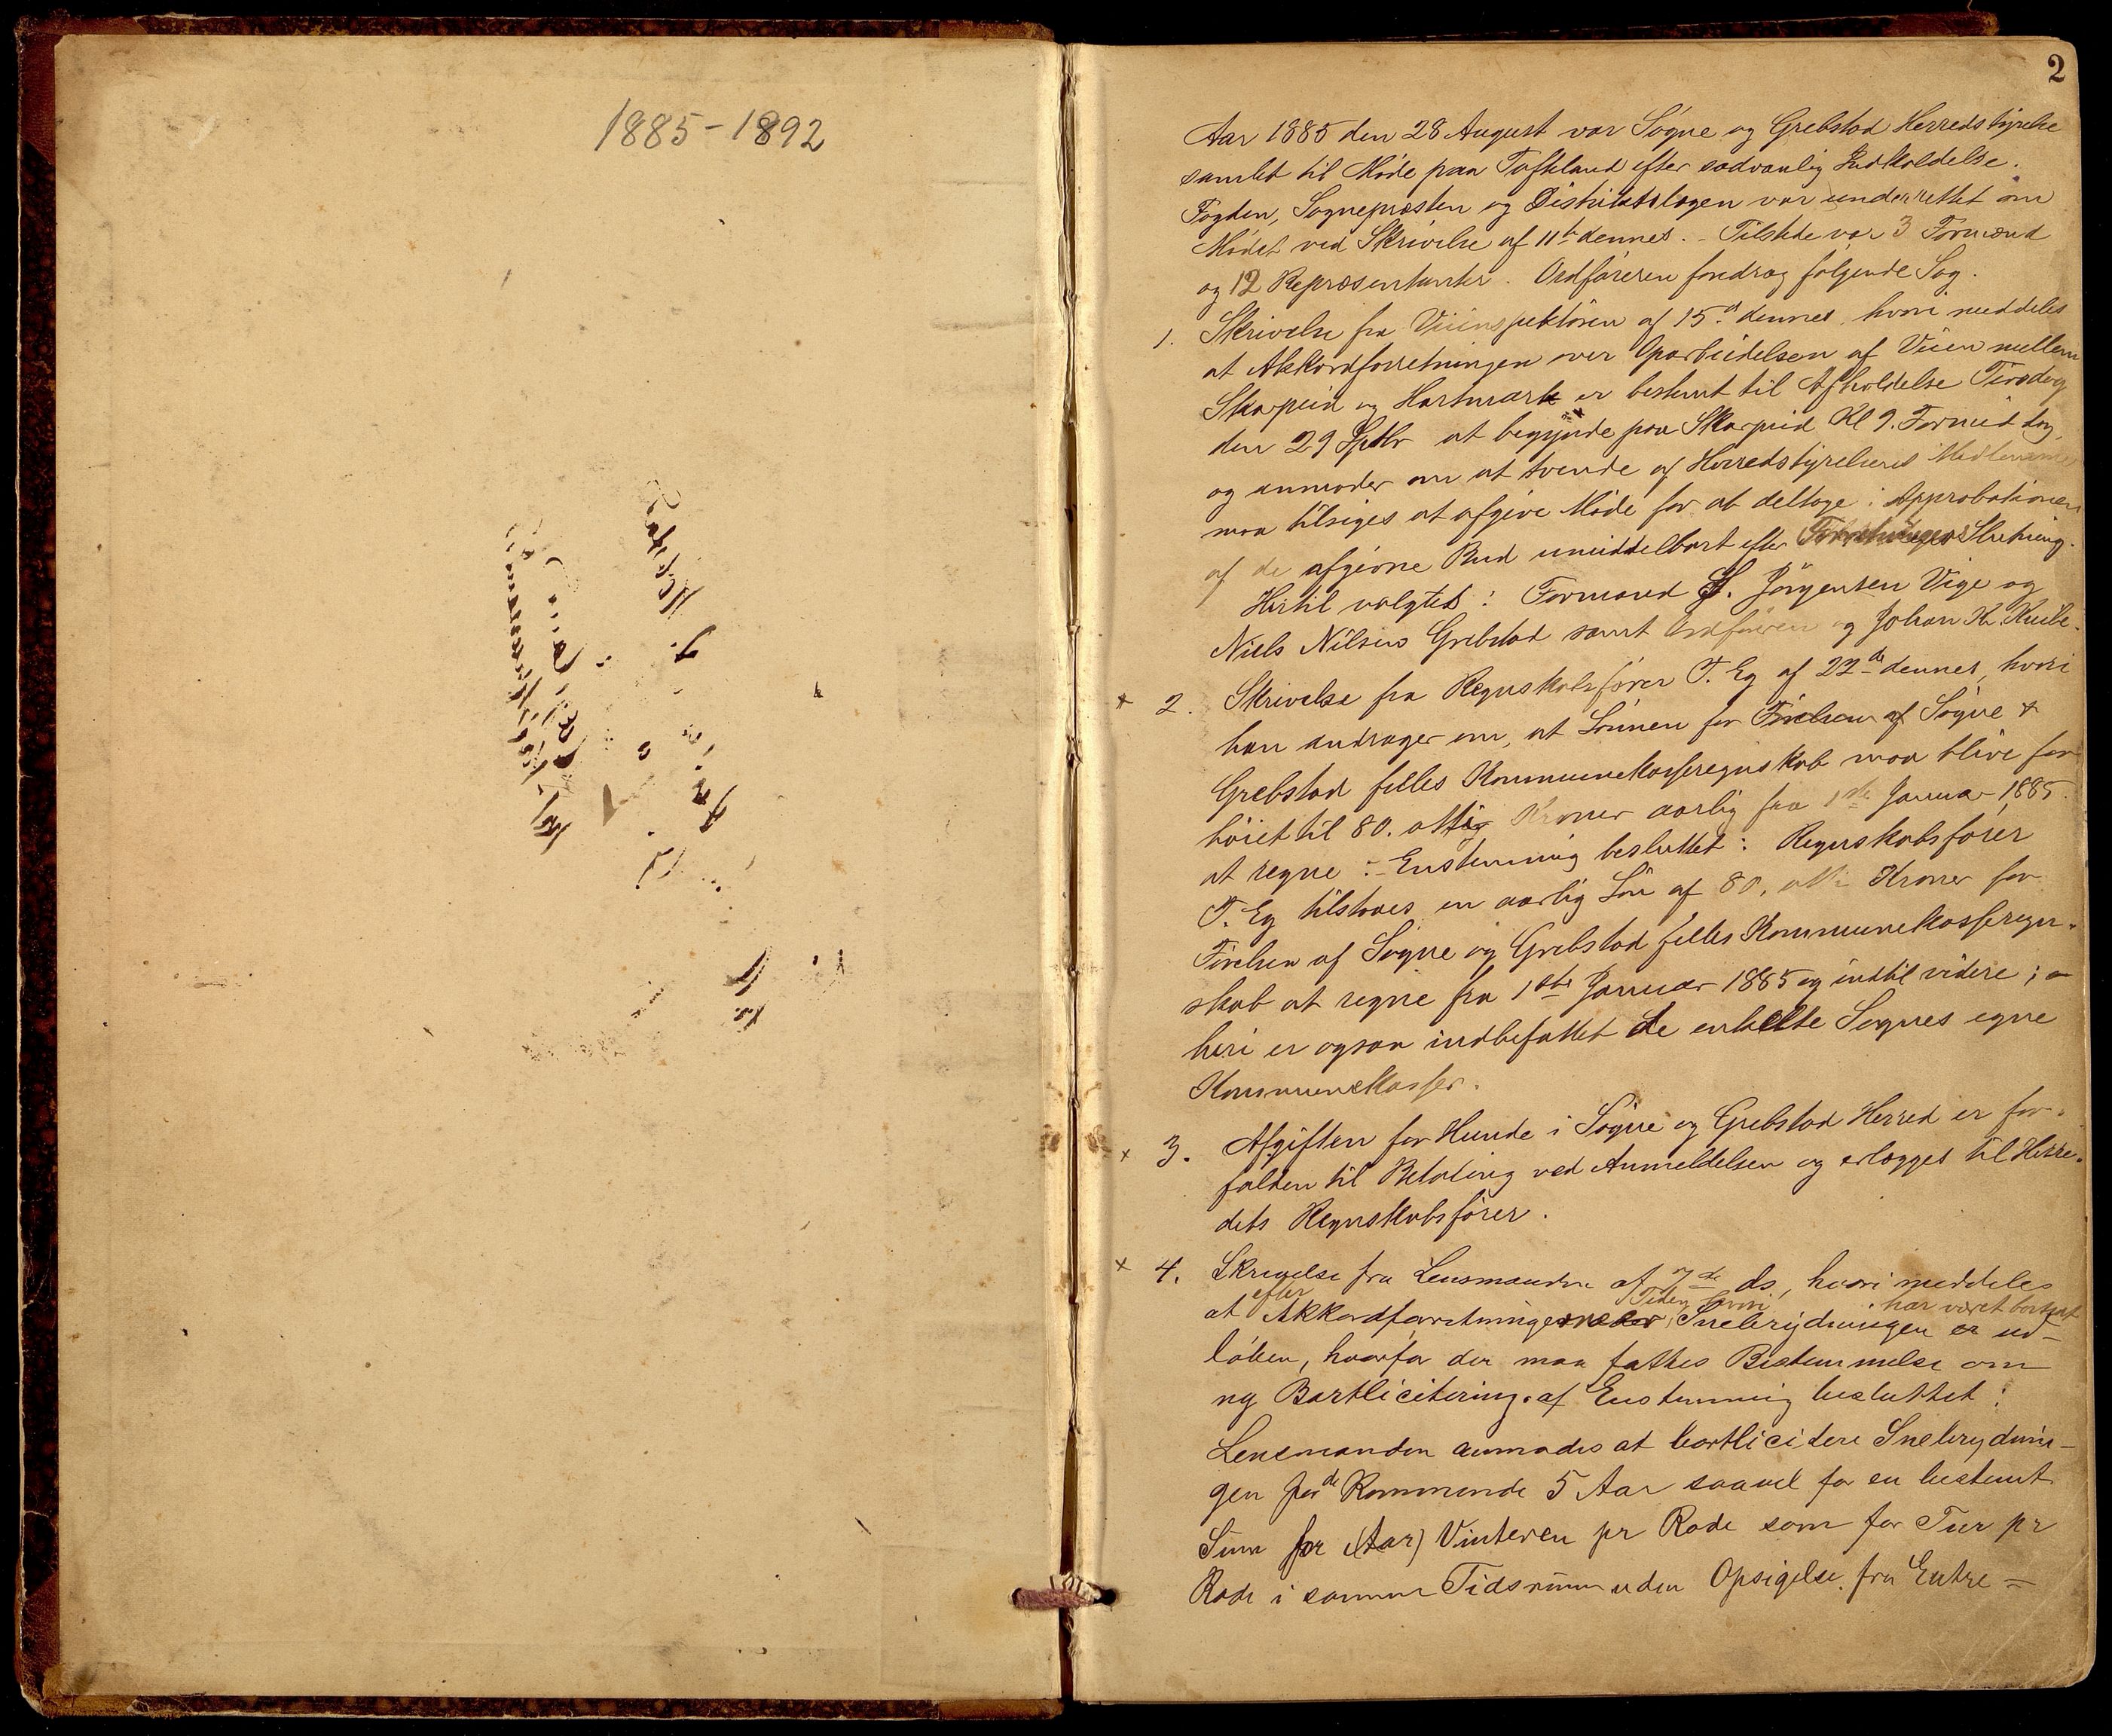 1885-1892
2
Aar 1885 den 28 August var Søgne og Grebstad Herredstyrelse
samlet til Møde paa Toftland efter sædvanlig Indkaldelse.
Fogden, Sognepresten og Distriktslægen var underrettet om
Mødet ved Skrivelse af 11te dennes. - Tilstede var 3 Formænd
og 12 Repræsentanter. Ordføreren foredrog følgende Sag.
1. Skrivelse fra Veiinspektøren af 15de dennes, hvori meddeles
at Akkordforretningen over Oparbeidelsen af Veien mellem
Skarpeid og Hartmark er bestemt til Afholdelse Tirsdag
den 29 Septbr at begynde paa Skarpeid Kl 9. Formiddag,
og anmoder om at tvende af Herredstyrelsens Medlemmer
maa tilsiges at afgive Møde for at deltage i Approbationen
af de afgivne Bud umiddelbart efter Slutning.
Hertil valgtes: Formand S. Jørgensen Vige og
Niels Nilsen Grebstad samt Ordføreren og Johan K.
2. Skrivelse fra Regnskabsfører T. Eg af 22de dennes, hvori
han andrager om, at Lønnen for Førelsen af Søgne &
Grebstad felles Kommunekasseregnskab maa blive for-
høiet til 80. otti Kroner aarlig fra 1ste Januar 1885
at regne :- Enstemmig besluttet: Regnskabsfører
T. Eg tilstaaes en aarlig Løn af 80, otti Kroner for
Førelsen af Søgne og Grebstad felles Kommunekasseregn-
skab at regne fra 1ste Januar 1885 og indtil videre; -
heri er ogsaa indbefattet de enkelte Sognes egne
Kommunekasser.
3. Afgiften for Hunde i Søgne og Grebstad Herred er for-
falden til Betaling ved Anmeldelsen og erlægges til Herre-
dets Regnskabsfører.
4. Skrivelse fra Lensmanden af 7de ds, hvori meddeles
efter Tiden hvori har været bortsat
at Akkordforretningerne Snebrydningen er ud-
løben, hvorfor der maa fattes Bestemmelse om
ny Bortlicitering. af Enstemmig besluttet:
Lensmanden anmodes at bortlicitere Snebrydnin-
gen for de Kommende 5 Aar saavel for en bestemt
Sum for (Aar) Vinteren pr Rode som for Tur pr
Rode i samme Tidsrum uden Opsigelse fra Entre-